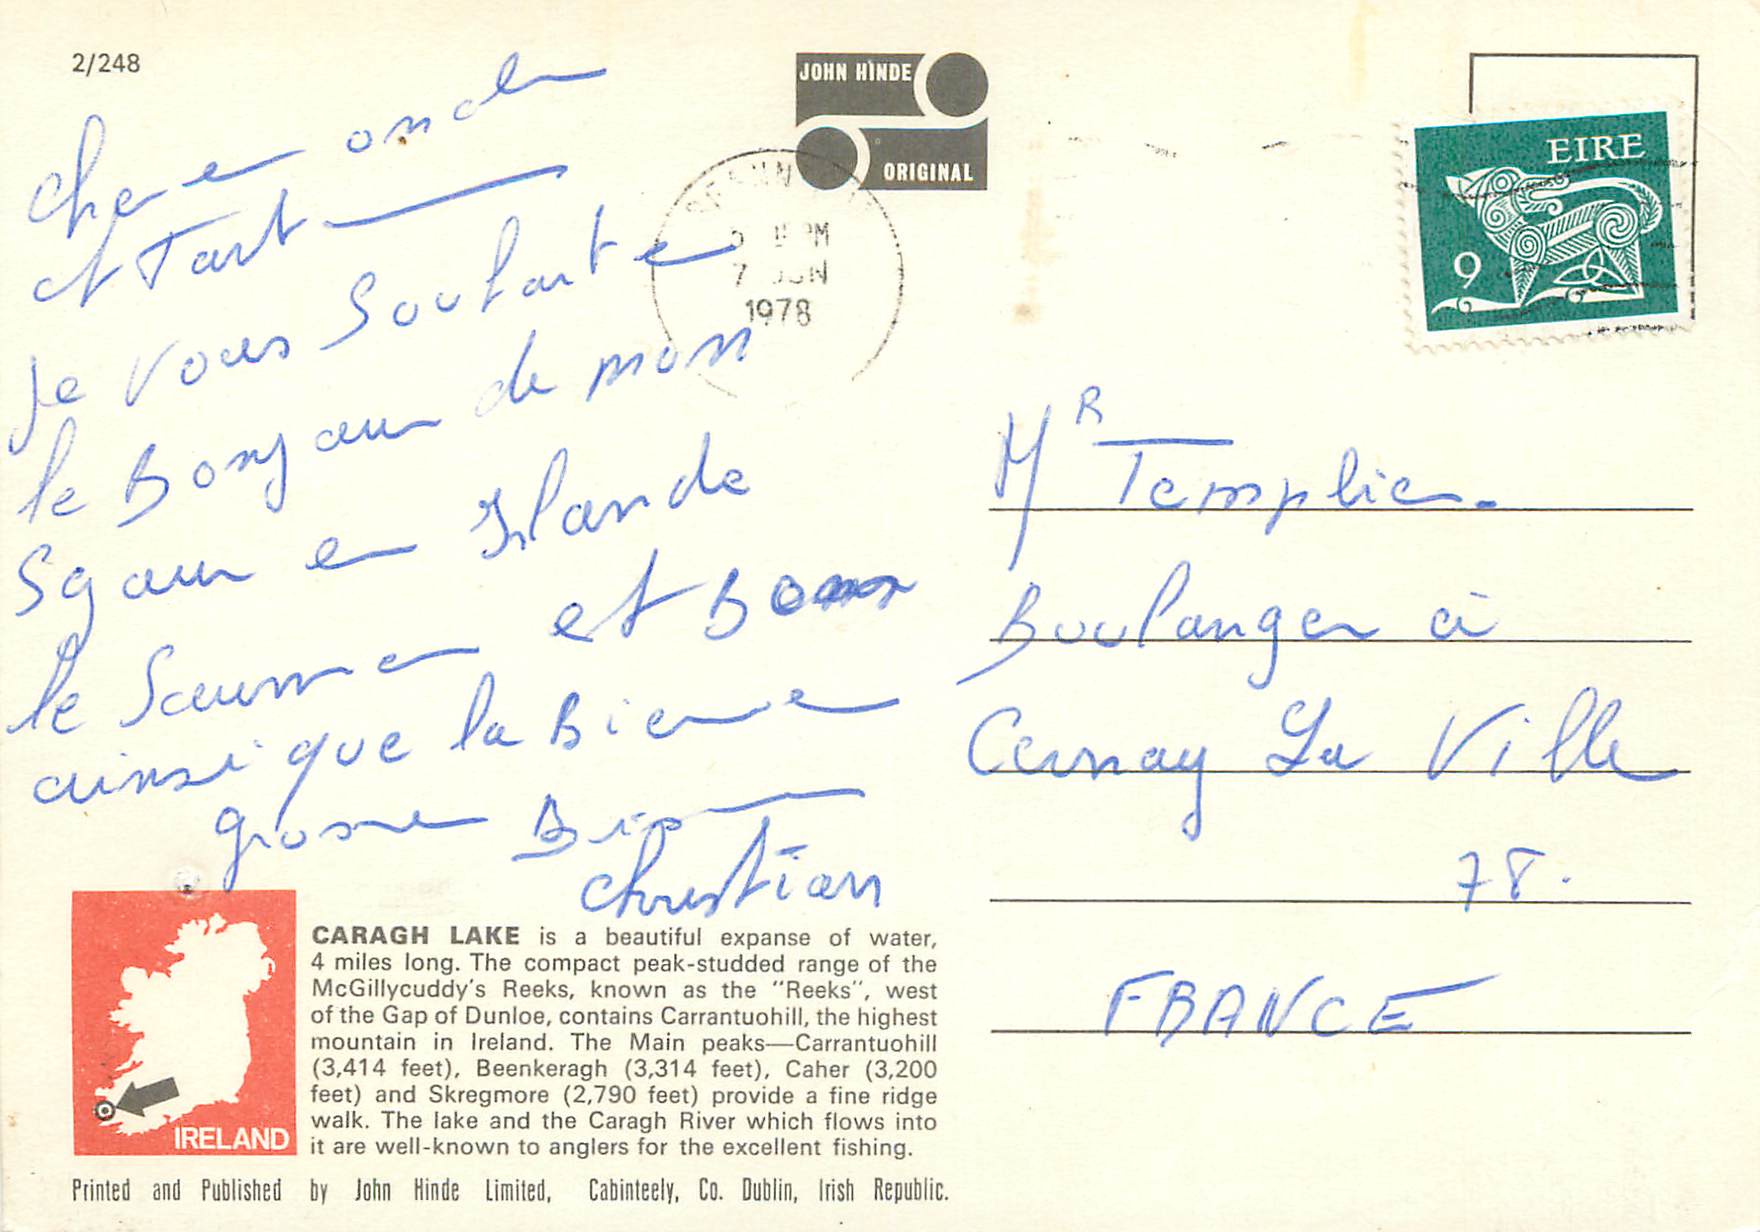 2/248
JOHN HINDE
ORIGINAL
EIRE
9
PM
7 JUN
1978
cher oncle
et Tart
je vous Souhaite
le Bonjour de mon
Sjour en Irlande
le Saumon et Bon
ainsi que la Biere
grosse Bise
Christian
MR Templier.
Boulanger à
Cernay La Ville
78.
FRANCE
IRELAND
CARAGH LAKE is a beautiful expanse of water,
4 miles long. The compact peak-studded range of the
McGillycuddy's Reeks, known as the "Reeks", west
of the Gap of Dunloe, contains Carrantuohill, the highest
mountain in Ireland. The Main peaks—Carrantuohill
(3,414 feet), Beenkeragh (3,314 feet), Caher (3,200
feet) and Skregmore (2,790 feet) provide a fine ridge
walk. The lake and the Caragh River which flows into
it are well-known to anglers for the excellent fishing.
Printed and Published by John Hinde Limited, Cabinteely, Co. Dublin, Irish Republic.